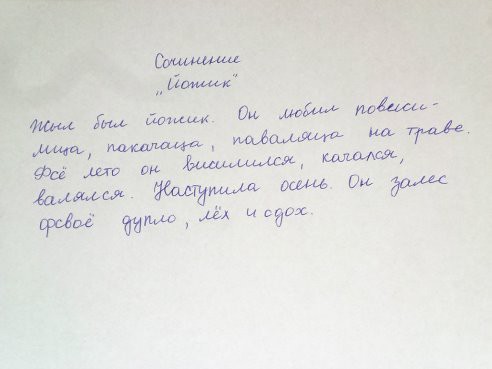 Сочинение
„Йожик“
Жыл был йожик. Он любил повеси-
мица, пакачаца, паваляца на траве.
Фсё лето он висимился, качался,
валялся. Наступила осень. Он залес
фсваё дупло, лёх и сдох.